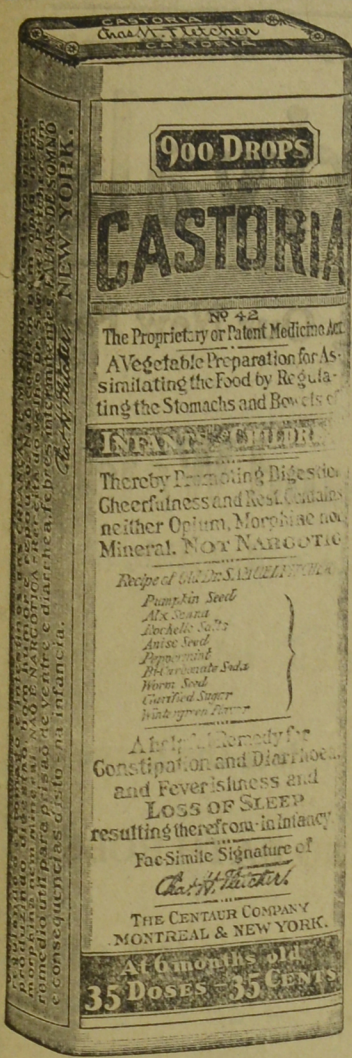 CASTORIA
Chas H. Fletcher
CASTORIA
900 DROPS
CASTORIA
Nº 42
The Proprietary or Patent Medicine Act.
A Vegetable Preparation for As-
similating the Food by Regula-
ting the Stomachs and Bowels of
INFANTS CHILDR
Thereby Promoting Digestion
Cheerfulness and Rest. Contains
neither Opium, Morphine nor
Mineral. NOT NARCOTIC
Recipe of OLD Dr. SAMUEL PITCHER
Pumpkin Seed
Alx Senna
Rochelle Salts
Anise Seed
Peppermint
Bi-Carbonate Soda
Worm Seed
Clarified Sugar
Wintergreen Flavor
A helpful Remedy for
Constipation and Diarrhoea
and Feverishness and
LOSS OF SLEEP
resulting therefrom in Infancy
Fac-Simile Signature of
Chas. H. Fletcher.
THE CENTAUR COMPANY
MONTREAL & NEW YORK.
At 6 months old
35 DOSES - 35 CENTS
produzindo digestão,
morphina nem mineral. NÃO É NARCOTICA
remedio util para prisão de ventre e diarrhea, febres intermitentes, FALTAS DE SOMNO
e consequencias disto na infancia.
Chas H. Fletcher. NEW YORK.